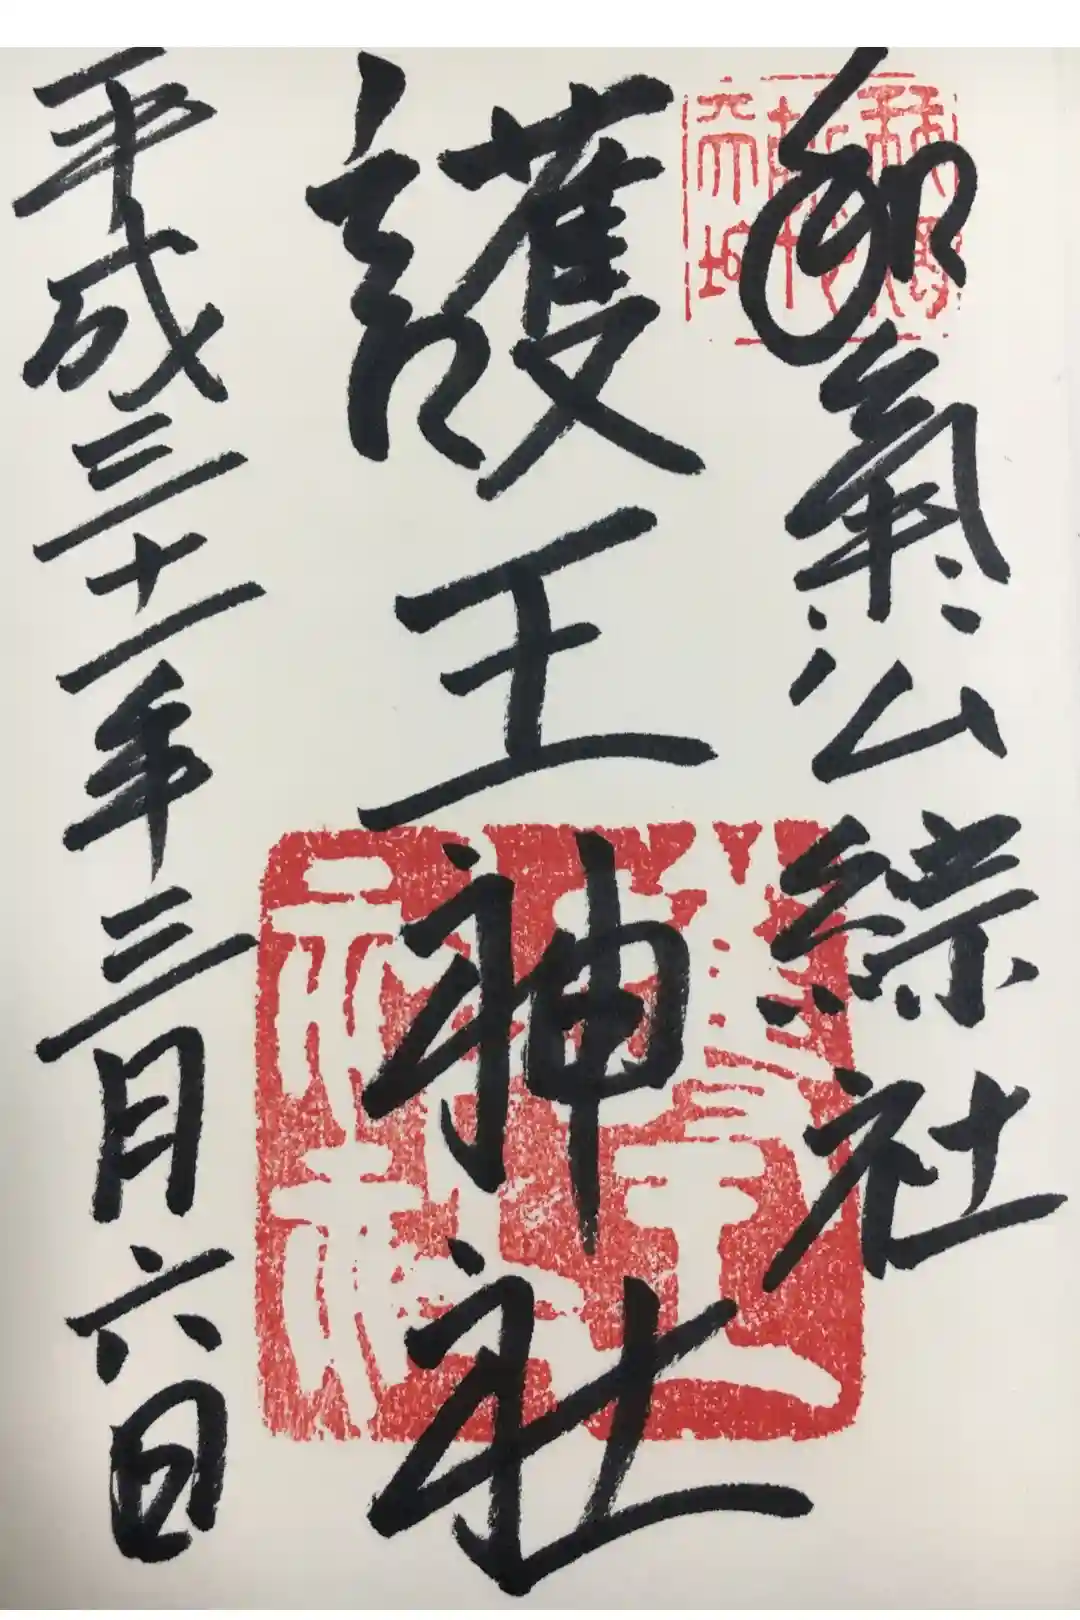 和氣公綜社
護王神社
平成三十一年三月六日
護王神社